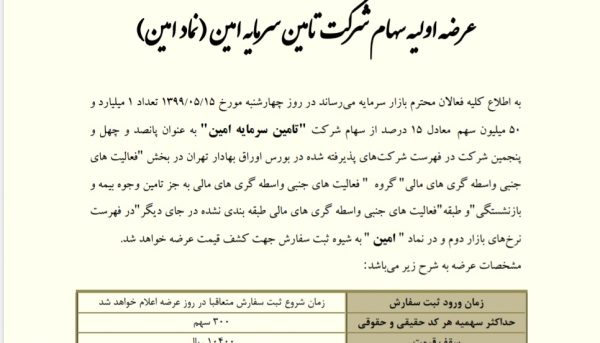 عرضه اولیه سهام شرکت تامین سرمایه امین (نماد امین)
به اطلاع کلیه فعالان محترم بازار سرمایه می‌رساند در روز چهارشنبه مورخ ۱۳۹۹/۰۵/۱۵ تعداد ۱ میلیارد و
۵۰ میلیون سهم معادل ۱۵ درصد از سهام شرکت "تامین سرمایه امین" به عنوان پانصد و چهل و
پنجمین شرکت در فهرست شرکت‌های پذیرفته شده در بورس اوراق بهادار تهران در بخش "فعالیت های
جنبی واسطه گری های مالی" گروه " فعالیت های جنبی واسطه گری های مالی به جز تامین وجوه بیمه و
بازنشستگی"و طبقه"فعالیت های جنبی واسطه گری های مالی طبقه بندی نشده در جای دیگر"در فهرست
نرخ‌های بازار دوم و در نماد " امین " به شیوه ثبت سفارش جهت کشف قیمت عرضه خواهد شد.
مشخصات عرضه به شرح زیر می‌باشد:
زمان ورود ثبت سفارش زمان شروع ثبت سفارش متعاقبا در روز عرضه اعلام خواهد شد
حداکثر سهمیه هر کد حقیقی و حقوقی ۳۰۰ سهم
سقف قیمت ۱۰۴۰۰ ریال